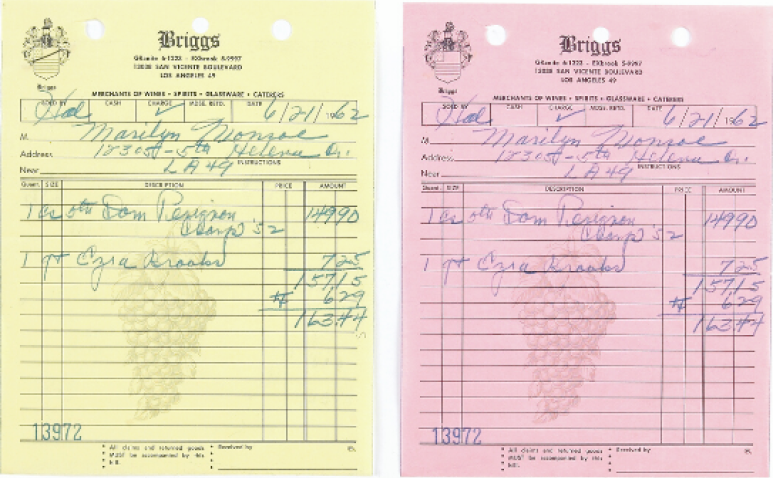 Briggs
GRanite 6-1223 - EXbrook 5-9997
13038 SAN VICENTE BOULEVARD
LOS ANGELES 49
Briggs
MERCHANTS OF WINES • SPIRITS • GLASSWARE • CATERERS
SOLD BY CASH CHARGE MDSE. RETD. DATE
Hal ✓ 6/21/1962
M Marilyn Monroe
Address 12305-5th Helena Dr.
INSTRUCTIONS
Near LA 49
Quant. SIZE DESCRIPTION PRICE AMOUNT
1 cs 5th Dom Perignon 149.90
Champ '52
1 qt Ezra Brooks 7.25
157.15
6.29
163.44
13972
* All claims and returned goods * Received by
* MUST be accompanied by this *
* bill. *
Briggs
GRanite 6-1223 - EXbrook 5-9997
13038 SAN VICENTE BOULEVARD
LOS ANGELES 49
Briggs
MERCHANTS OF WINES • SPIRITS • GLASSWARE • CATERERS
SOLD BY CASH CHARGE MDSE. RETD. DATE
Hal ✓ 6/21/1962
M Marilyn Monroe
Address 12305-5th Helena Dr.
INSTRUCTIONS
Near LA 49
Quant. SIZE DESCRIPTION PRICE AMOUNT
1 cs 5th Dom Perignon 149.90
Champ '52
1 qt Ezra Brooks 7.25
157.15
6.29
163.44
13972
* All claims and returned goods * Received by
* MUST be accompanied by this *
* bill. *